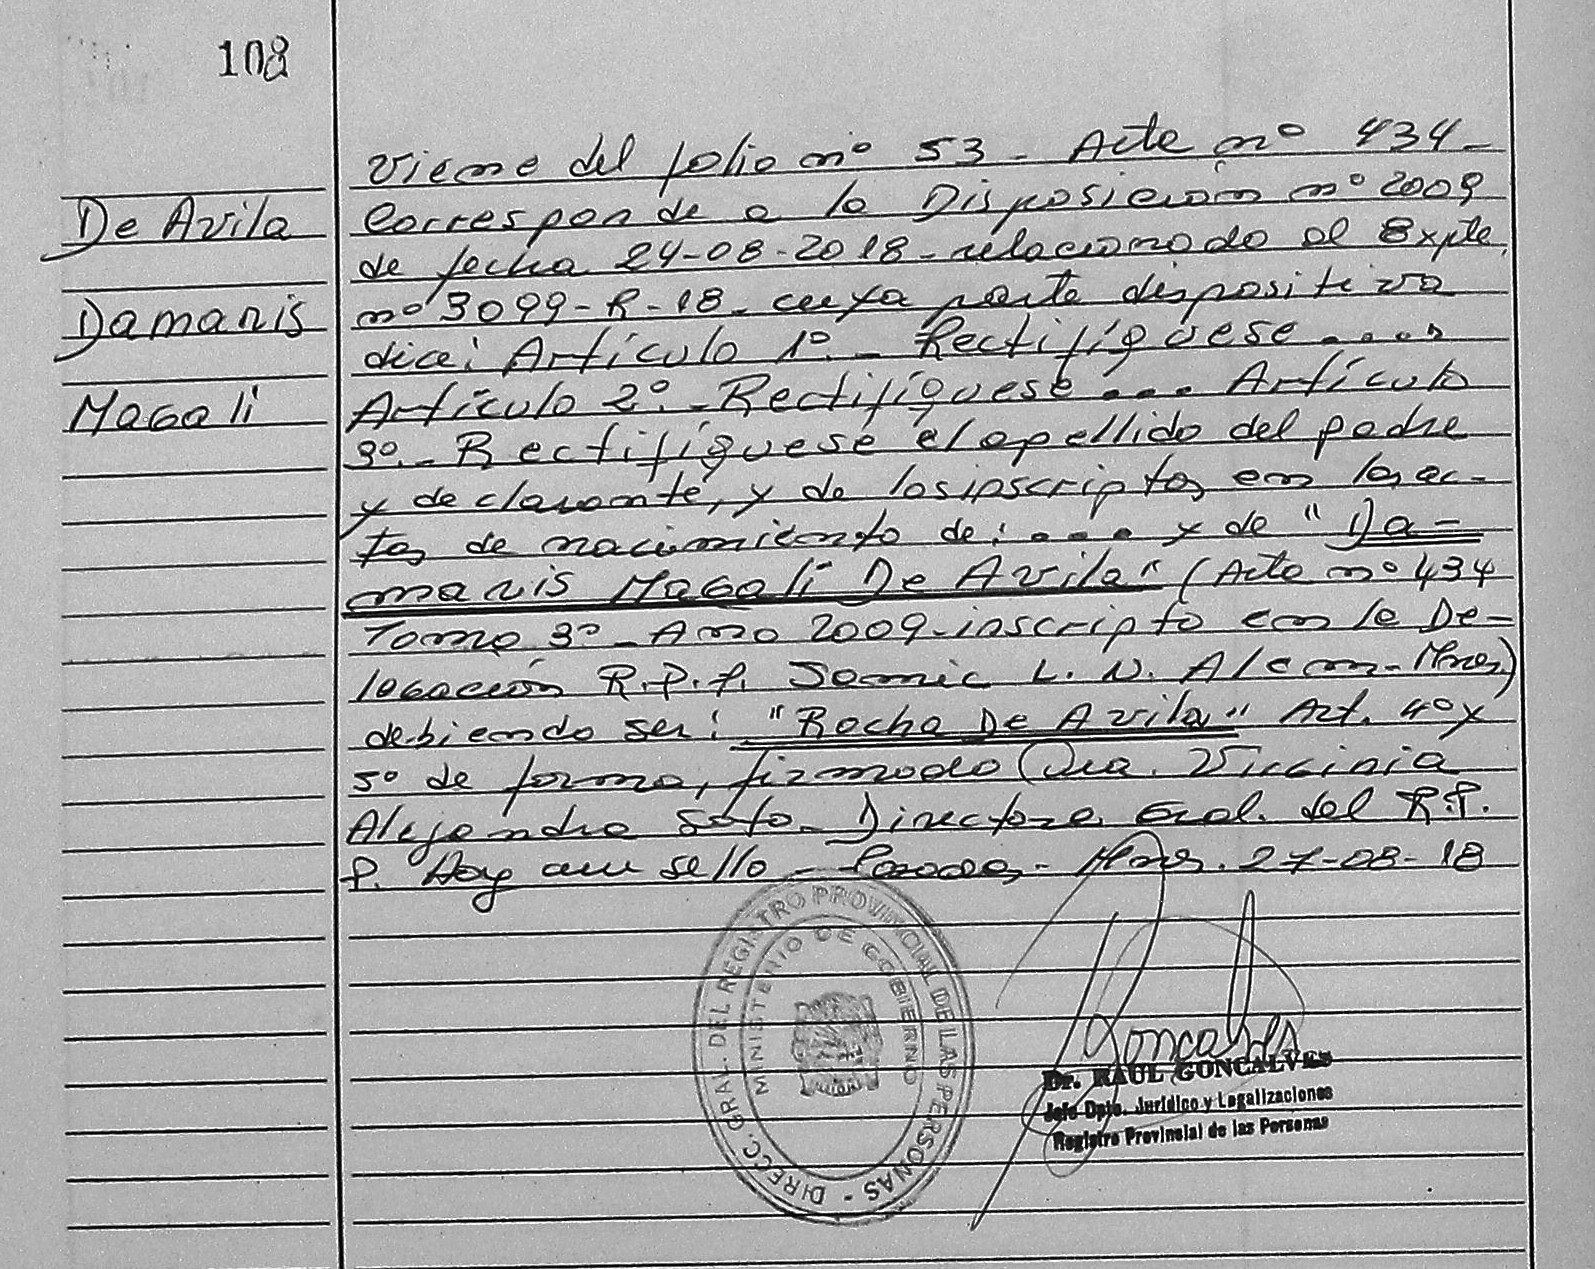 108
De Avila
Damaris
Magali
Viene del folio nº 53 - Acta nº 434 -
Corresponde a la Disposición nº 2009
de fecha 24-08-2018 - relacionado al Expte.
nº 3099-R-18 - cuya parte dispositiva
dice: Artículo 1º - Rectifíquese ...."
Artículo 2º. - Rectifíquese ... Artículo
3º. - Rectifíquese el apellido del padre
y declarante, y de los inscriptos en las ac-
tas de nacimiento de: .... y de "Da-
maris Magali De Avila" (Acta nº 434
Tomo 3º - Año 2009 - inscripto en la De-
legación R.P.P. Samic L. N. Alem - Mnes)
debiendo ser: "Rocha De Avila" Art. 4º y
5º de forma, firmado Dra. Virginia
Alejandra Soto - Directora Gral. del R.P.
P. Hay un sello - Posadas - Mnes. 27-08-18
DIRECC. GRAL. DEL REGISTRO PROVINCIAL DE LAS PERSONAS -
MINISTERIO DE GOBIERNO
Goncalves
Dr. RAUL GONCALVES
Jefe Dpto. Jurídico y Legalizaciones
Registro Provincial de las Personas